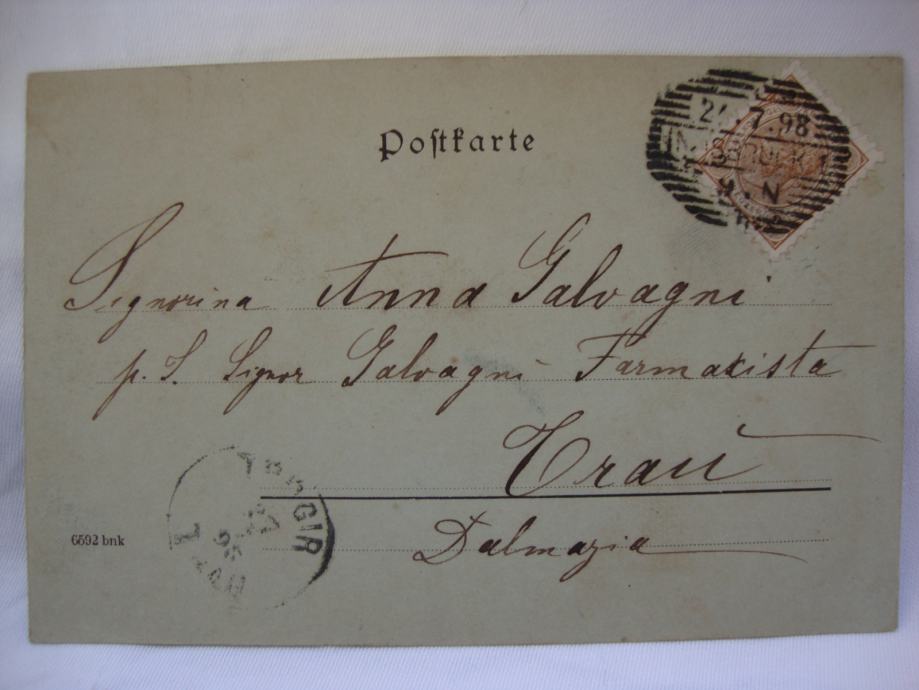 Postkarte
7.98
INNSBRUCK 1
N
Signorina Anna Galvagni
p. S. Signor Galvagni Farmacista
Traù
Dalmazia
6592 bnk
TROGIR
TRAU